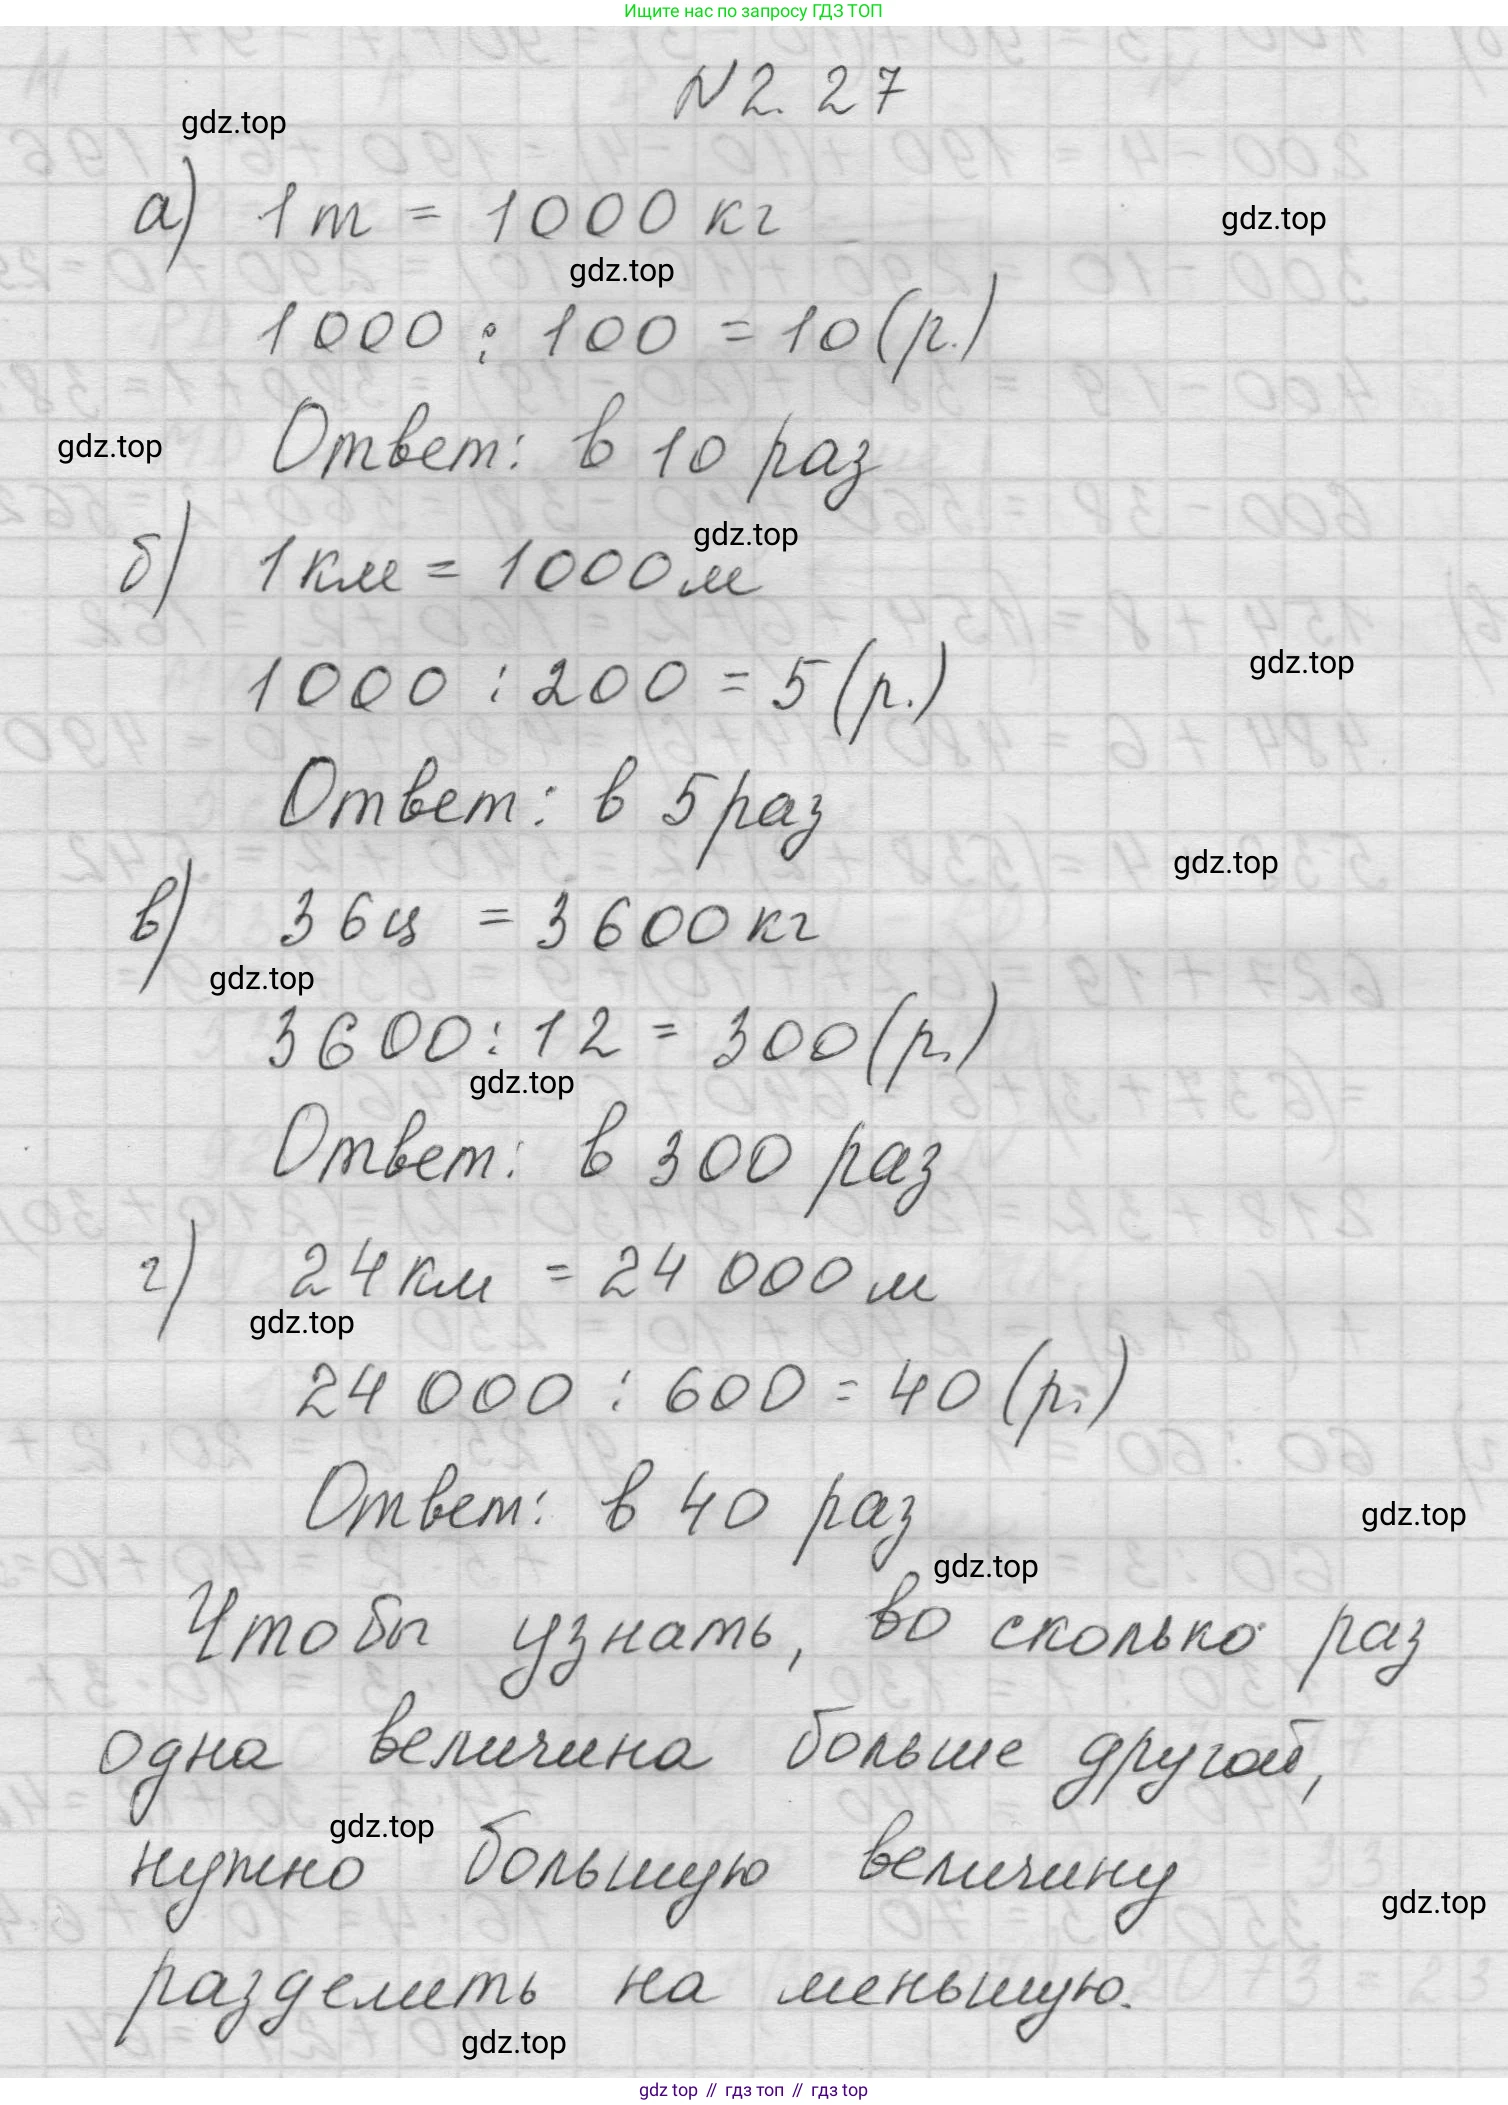 Ищите нас по запросу ГДЗ ТОП
N 2.27
gdz.top
а) 1 т = 1000 кг
gdz.top
gdz.top
1000 : 100 = 10 (р.)
Ответ: в 10 раз
gdz.top
gdz.top
б) 1 км = 1000 м
1000 : 200 = 5 (р.)
gdz.top
Ответ: в 5 раз
gdz.top
в) 36 ц = 3600 кг
gdz.top
3600 : 12 = 300 (р.)
gdz.top
Ответ: в 300 раз
г) 24 км = 24 000 м
gdz.top
24 000 : 600 = 40 (р.)
Ответ: в 40 раз
gdz.top
gdz.top
Чтобы узнать, во сколько раз
одна величина больше другой,
gdz.top
нужно большую величину
gdz.top
разделить на меньшую.
gdz.top
gdz top // гдз топ // гдз top